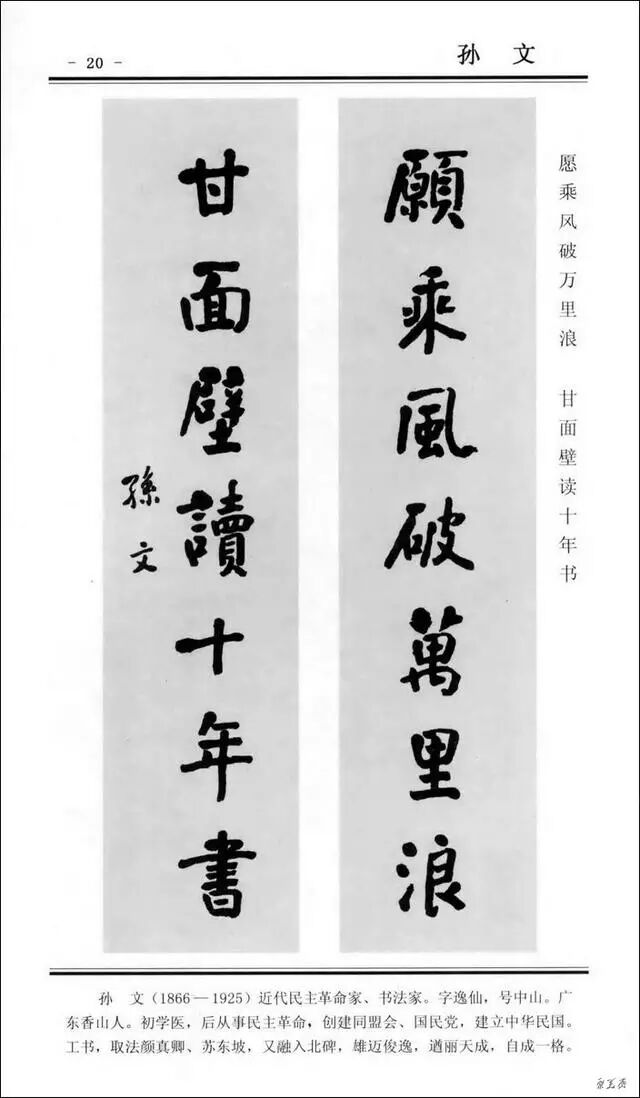 - 20 -
孙 文
願乘風破萬里浪
甘面壁讀十年書
孫文
愿乘风破万里浪 甘面壁读十年书
孙 文(1866—1925)近代民主革命家、书法家。字逸仙,号中山。广
东香山人。初学医,后从事民主革命,创建同盟会、国民党,建立中华民国。
工书,取法颜真卿、苏东坡,又融入北碑,雄迈俊逸,遒丽天成,自成一格。